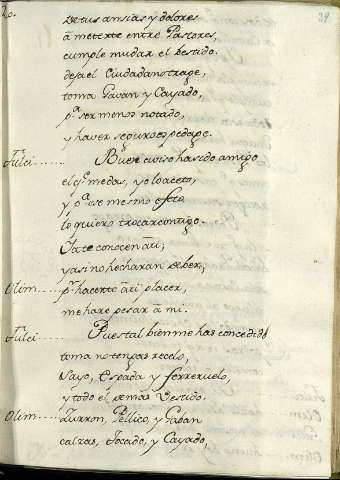 de tus ansias y dolores
a meterte entre Pastores,
cumple mudar el bestido.
deja el Ciudadano trage,
toma Gavan y Cayado,
pª ser menos notado,
y haver seguro
Fulci...... Buen aviso ha sido amigo
el qᵉ me das, y yo lo aceto,
y pª ese mesmo efeto
lo quiero trocar contigo.
Ya te conocen a ti,
y asi no hecharan de ber,
Olim...... pʳ hacerte a ti placer,
me hare pesar a mi.
Fulci...... Pues tal bien me has concedido
toma no tengas recelo,
Sayo, Espada y ferreruelo,
y todo el demas Vestido.
Olim...... Zurron, Pellico, y Gaban
calzas, Tocado, y Cayado,